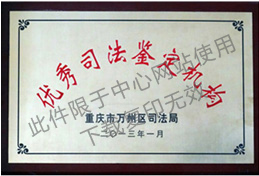 优秀司法鉴定机构
重庆市万州区司法局
二〇一三年一月
此件限于中心网站使用
下载复印无效